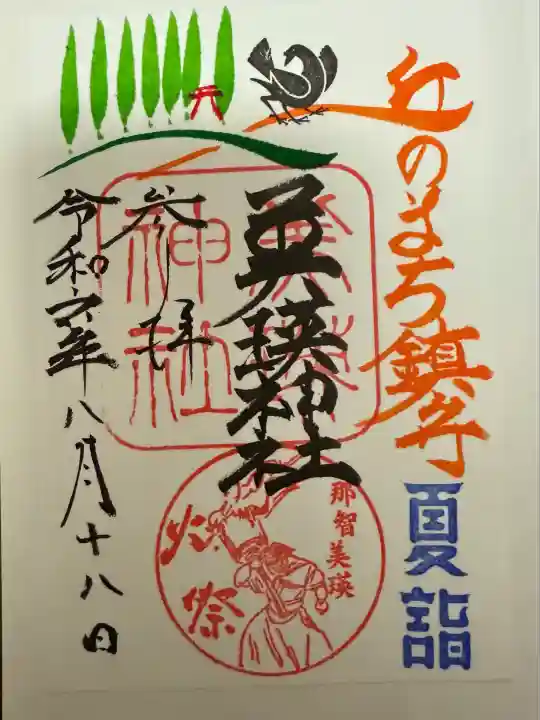 丘のまち鎮守
夏詣
美瑛神社
美瑛神社
那智美瑛
火祭
参拝
令和六年八月十八日